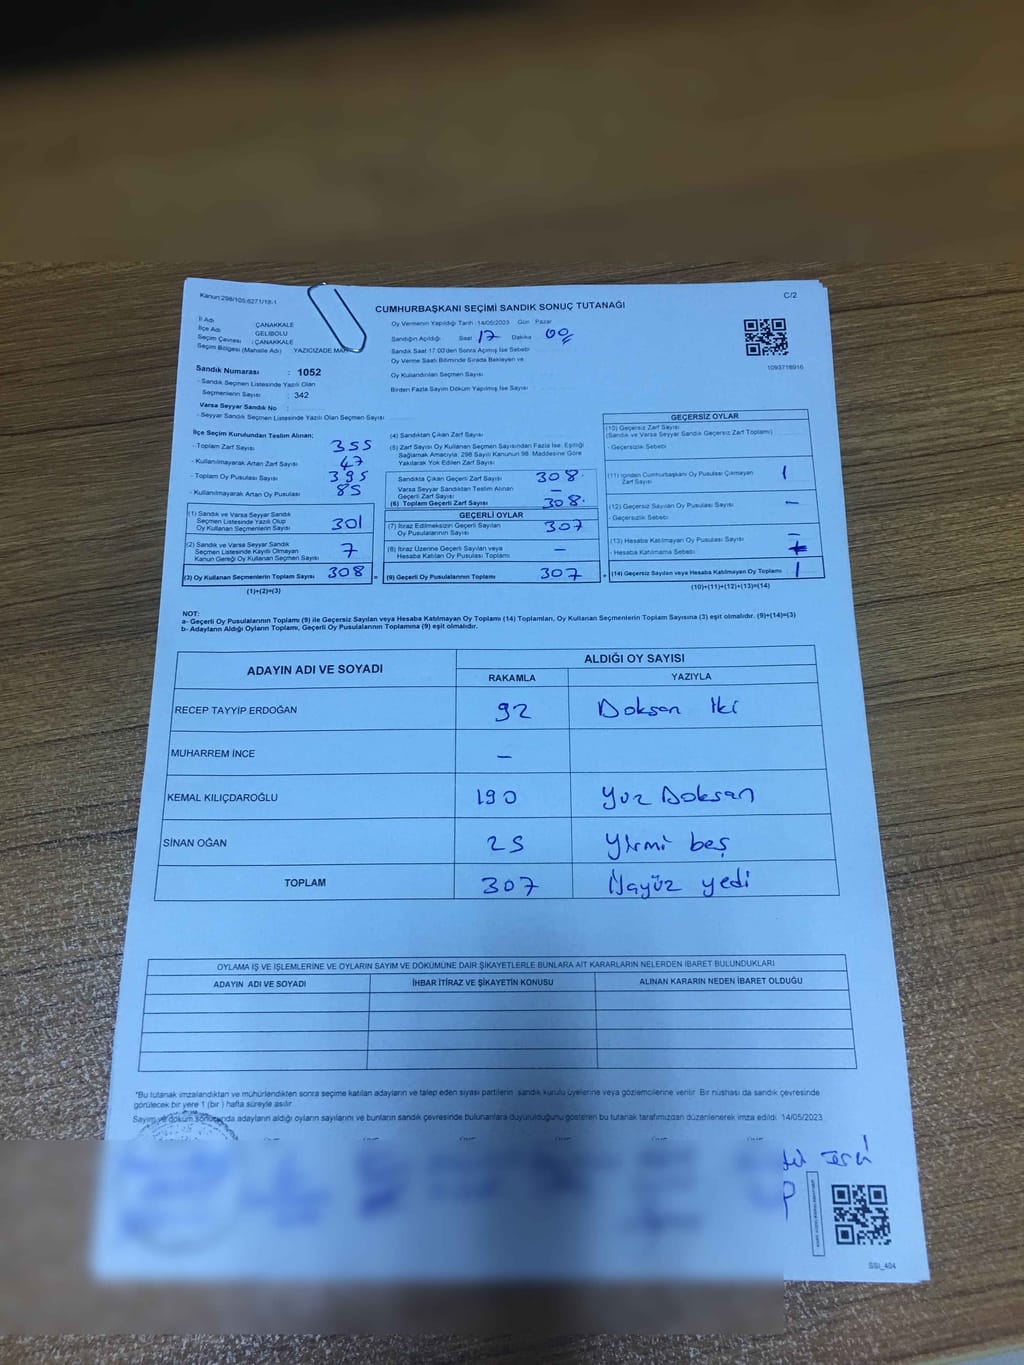 Kanun:298/105;6271/18-1
C/2
CUMHURBAŞKANI SEÇİMİ SANDIK SONUÇ TUTANAĞI
İl Adı : ÇANAKKALE
İlçe Adı : GELİBOLU
Seçim Çevresi : ÇANAKKALE
Seçim Bölgesi (Mahalle Adı) : YAZICIZADE MAH
Sandık Numarası : 1052
- Sandık Seçmen Listesinde Yazılı Olan
Seçmenlerin Sayısı : 342
Varsa Seyyar Sandık No :
- Seyyar Sandık Seçmen Listesinde Yazılı Olan Seçmen Sayısı
Oy Vermenin Yapıldığı Tarih : 14/05/2023 Gün : Pazar
Sandığın Açıldığı : Saat 17 Dakika 00
Sandık Saat 17:00'den Sonra Açılmış İse Sebebi
Oy Verme Saati Bitiminde Sırada Bekleyen ve
Oy Kullandırılan Seçmen Sayısı
Birden Fazla Sayım Döküm Yapılmış İse Sayısı
1093718916
İlçe Seçim Kurulundan Teslim Alınan:
- Toplam Zarf Sayısı 355
- Kullanılmayarak Artan Zarf Sayısı 47
- Toplam Oy Pusulası Sayısı 395
- Kullanılmayarak Artan Oy Pusulası 85
(1) Sandık ve Varsa Seyyar Sandık
Seçmen Listesinde Yazılı Olup
Oy Kullanan Seçmenlerin Sayısı 301
(2) Sandık ve Varsa Seyyar Sandık
Seçmen Listesinde Kayıtlı Olmayan
Kanun Gereği Oy Kullanan Seçmen Sayısı 7
(3) Oy Kullanan Seçmenlerin Toplam Sayısı 308
(1)+(2)=(3)
(4) Sandıktan Çıkan Zarf Sayısı
(5) Zarf Sayısı Oy Kullanan Seçmen Sayısından Fazla İse, Eşitliği
Sağlamak Amacıyla, 298 Sayılı Kanunun 98. Maddesine Göre
Yakılarak Yok Edilen Zarf Sayısı
Sandıkta Çıkan Geçerli Zarf Sayısı 308
Varsa Seyyar Sandıktan Teslim Alınan
Geçerli Zarf Sayısı –
(6) Toplam Geçerli Zarf Sayısı 308
GEÇERLİ OYLAR
(7) İtiraz Edilmeksizin Geçerli Sayılan
Oy Pusulalarının Sayısı 307
(8) İtiraz Üzerine Geçerli Sayılan ve
Hesaba Katılan Oy Pusulası Toplamı –
= (9) Geçerli Oy Pusulalarının Toplamı 307
GEÇERSİZ OYLAR
(10) Geçersiz Zarf Sayısı
(Sandık ve Varsa Seyyar Sandık Geçersiz Zarf Toplamı)
- Geçersizlik Sebebi
(11) İçinden Cumhurbaşkanı Oy Pusulası Çıkmayan
Zarf Sayısı 1
(12) Geçersiz Sayılan Oy Pusulası Sayısı –
- Geçersizlik Sebebi
(13) Hesaba Katılmayan Oy Pusulası Sayısı –
- Hesaba Katılmama Sebebi
+ (14) Geçersiz Sayılan veya Hesaba Katılmayan Oy Toplamı 1
(10)+(11)+(12)+(13)=(14)
NOT:
a- Geçerli Oy Pusulalarının Toplamı (9) ile Geçersiz Sayılan veya Hesaba Katılmayan Oy Toplamı (14) Toplamları, Oy Kullanan Seçmenlerin Toplam Sayısına (3) eşit olmalıdır. (9)+(14)=(3)
b- Adayların Aldığı Oyların Toplamı, Geçerli Oy Pusulalarının Toplamına (9) eşit olmalıdır.
ADAYIN ADI VE SOYADI ALDIĞI OY SAYISI
RAKAMLA YAZIYLA
RECEP TAYYİP ERDOĞAN 92 Doksan iki
MUHARREM İNCE –
KEMAL KILIÇDAROĞLU 190 Yüz Doksan
SİNAN OĞAN 25 Yirmi beş
TOPLAM 307 Üçyüz yedi
OYLAMA İŞ VE İŞLEMLERİNE VE OYLARIN SAYIM VE DÖKÜMÜNE DAİR ŞİKAYETLERLE BUNLARA AİT KARARLARIN NELERDEN İBARET BULUNDUKLARI
ADAYIN ADI VE SOYADI İHBAR İTİRAZ VE ŞİKAYETİN KONUSU ALINAN KARARIN NEDEN İBARET OLDUĞU
*Bu tutanak imzalandıktan ve mühürlendikten sonra seçime katılan adayların ve talep eden siyasi partilerin sandık kurulu üyelerine veya gözlemcilerine verilir. Bir nüshası da sandık çevresinde
görülecek bir yere 1 (bir ) hafta süreyle asılır.
Sayım ve döküm sonucunda adayların aldığı oyların sayılarını ve bunların sandık çevresinde bulunanlara duyurulduğunu gösteren bu tutanak tarafımızdan düzenlenerek imza edildi. 14/05/2023
SSI_404